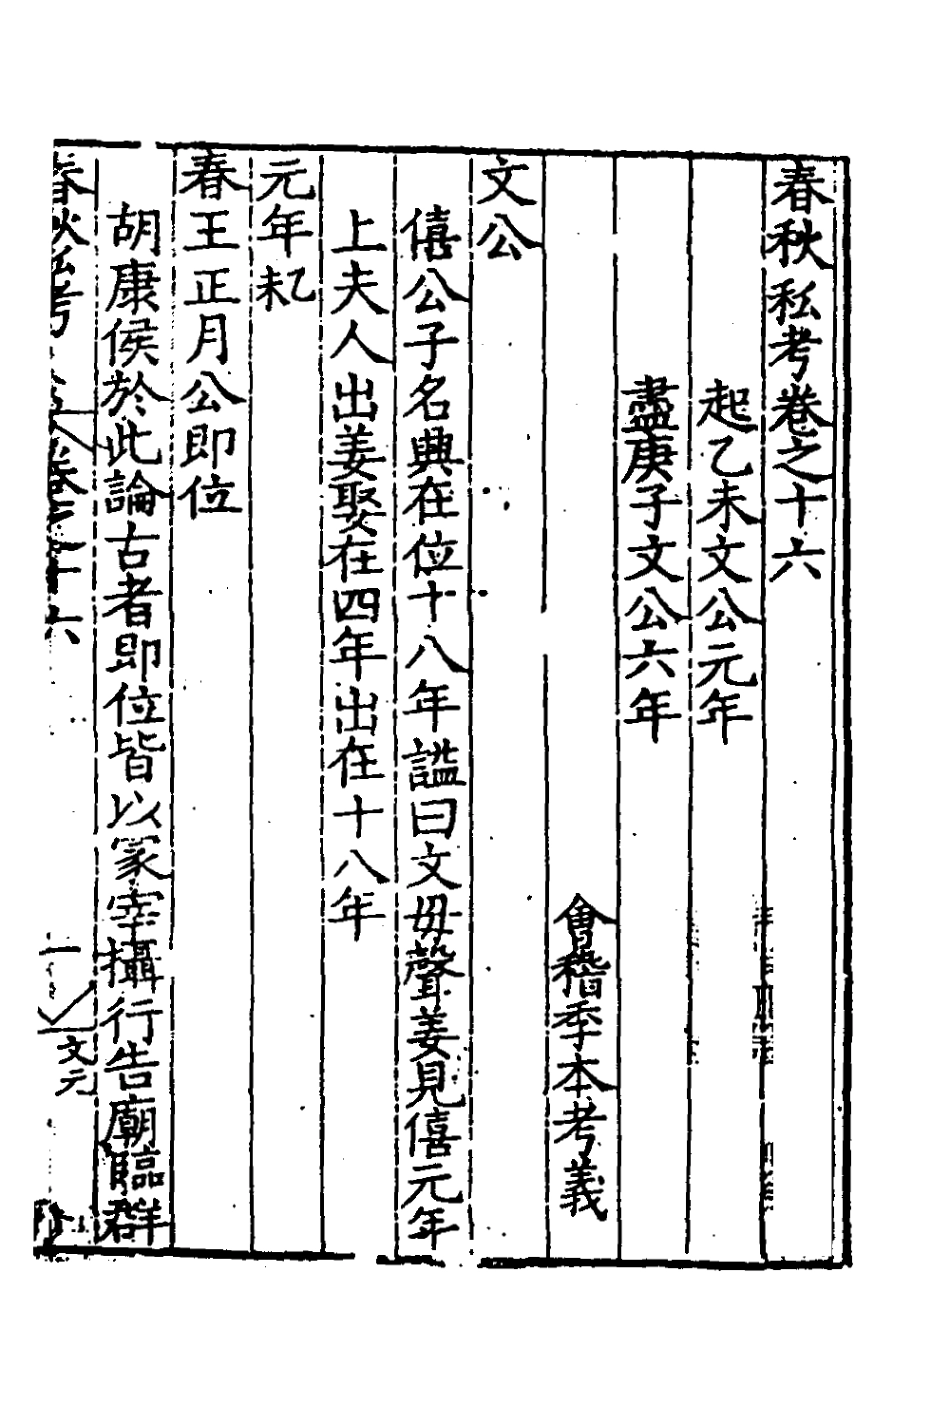 春秋私考卷之十六
起乙未文公元年
盡庚子文公六年
會稽季本考義
文公
僖公子名興在位十八年謚曰文毋聲姜見僖元年
上夫人出姜娶在四年出在十八年
元年
春王正月公即位
胡康侯於此論古者即位皆以冢宰攝行告廟臨群
春秋私考
卷之十六
一
文元